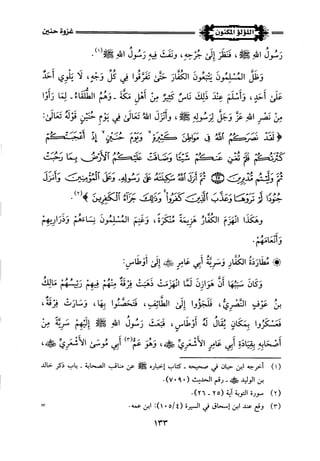 اللؤلؤ المكنون
غزوة حنين
رَسُولُ اللهِ ﷺ، فَنَظَرَ إِلَى جُرْحِهِ، وَنَفَثَ فِيهِ رَسُولُ اللهِ ﷺ(١).
وَظَلَّ المُسْلِمُونَ يَتْبَعُونَ الكُفَّارَ حَتَّى تَفَرَّقُوا فِي كُلِّ وَجْهٍ، لَا يَلْوِي أَحَدٌ
عَلَى أَحَدٍ، وَأَسْلَمَ عِنْدَ ذَلِكَ نَاسٌ كَثِيرٌ مِنْ أَهْلِ مَكَّةَ - وَهُمُ الطُّلَقَاءُ - لِمَا رَأَوْا
مِنْ نَصْرِ اللهِ عَزَّ وَجَلَّ لِرَسُولِهِ ﷺ، وَأَنْزَلَ اللهُ تَعَالَى فِي يَوْمِ حُنَيْنٍ قَوْلَهُ تَعَالَى:
﴿لَقَدْ نَصَرَكُمُ اللَّهُ فِي مَوَاطِنَ كَثِيرَةٍ وَيَوْمَ حُنَيْنٍ إِذْ أَعْجَبَتْكُمْ
كَثْرَتُكُمْ فَلَمْ تُغْنِ عَنكُمْ شَيْئًا وَضَاقَتْ عَلَيْكُمُ الْأَرْضُ بِمَا رَحُبَتْ
ثُمَّ وَلَّيْتُم مُّدْبِرِينَ ﴿٢٥﴾ ثُمَّ أَنزَلَ اللَّهُ سَكِينَتَهُ عَلَىٰ رَسُولِهِ وَعَلَى الْمُؤْمِنِينَ وَأَنزَلَ
جُنُودًا لَّمْ تَرَوْهَا وَعَذَّبَ الَّذِينَ كَفَرُوا وَذَٰلِكَ جَزَاءُ الْكَافِرِينَ﴾(٢).
وَهَكَذَا انْهَزَمَ الكُفَّارُ هَزِيمَةً مُنْكَرَةً، وَغَنِمَ المُسْلِمُونَ نِسَاءَهُمْ وَذَرَارِيهِمْ
وَأَنْعَامَهُمْ.
مُطَارَدَةُ الكُفَّارِ وَسَرِيَّةُ أَبِي عَامِرٍ ﵁ إِلَى أَوْطَاسٍ:
وَكَانَ سَبَبُهَا أَنَّ هَوَازِنَ لَمَّا انْهَزَمَتْ ذَهَبَتْ فِرْقَةٌ مِنْهُمْ فِيهِمْ رَئِيسُهُمْ مَالِكُ
بنُ عَوْفٍ النَّصْرِيُّ، فَلَجَؤُوا إِلَى الطَّائِفِ، فَتَحَصَّنُوا بِهَا، وَسَارَتْ فِرْقَةٌ،
فَعَسْكَرُوا بِمَكَانٍ يُقَالُ لَهُ أَوْطَاسٍ، فَبَعَثَ رَسُولُ اللهِ ﷺ إِلَيْهِمْ سَرِيَّةً مِنْ
أَصْحَابِهِ بِقِيَادَةِ أَبِي عَامِرٍ الأَشْعَرِيِّ ﵁، وَهُوَ عَمُّ(٣) أَبِي مُوسَى الأَشْعَرِيِّ ﵁،
(١) أخرجه ابن حبان في صحيحه - كتاب إخباره ﷺ عن مناقب الصحابة - باب ذكر خالد
بن الوليد ﵁ - رقم الحديث (٧٠٩٠).
(٢) سورة التوبة آية (٢٥ - ٢٦).
(٣) وقع عند ابن إسحاق في السيرة (١٠٥/٤): ابن عمه. =
١٣٣